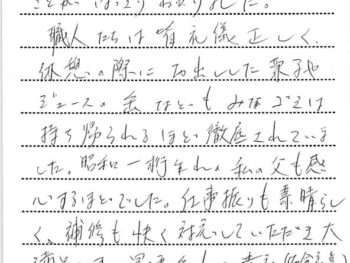 ことがはっきりわかりました。
職人たちは皆礼儀正しく、
休憩の際にお出しした菓子や
ジュースの缶などもみなゴミは
持ち帰られるほど徹底されていま
した。昭和一桁生れの私の父も感
心するほどでした。仕事振りも素晴らし
く、補修も快く対応していただき大